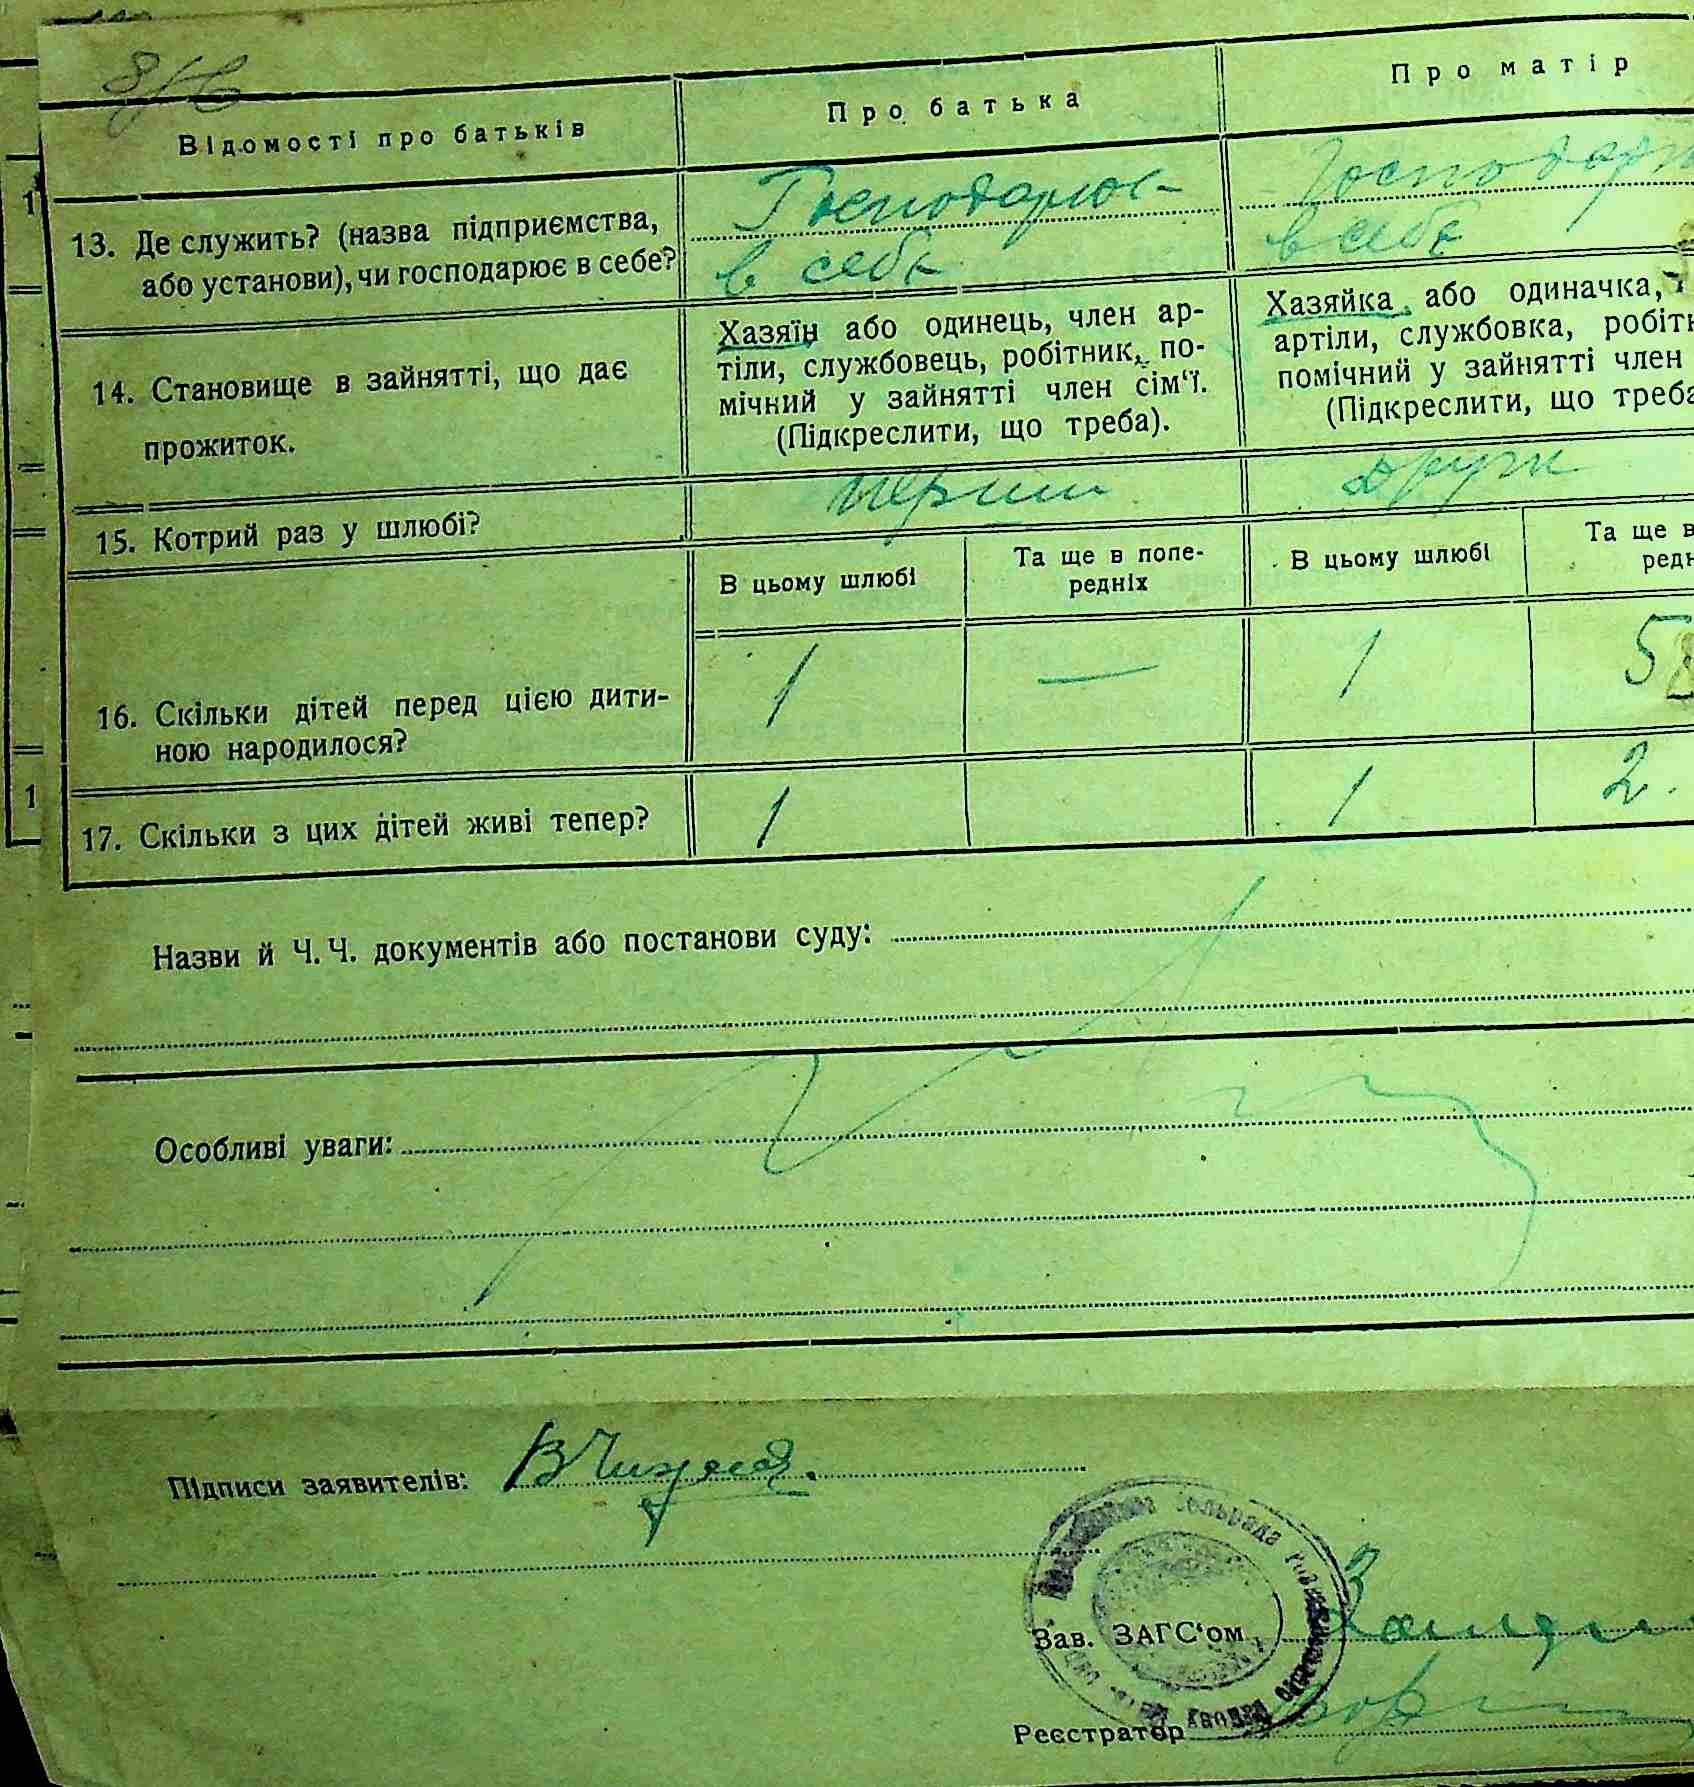 Відомості про батьків
Про батька
Про матір
13. Де служить? (назва підприємства, або установи), чи господарює в себе?
Господарює
в себе
в себе
14. Становище в зайнятті, що дає
прожиток.
Хазяїн або одинець, член ар-
тіли, службовець, робітник, по-
мічний у зайнятті член сім'ї.
(Підкреслити, що треба).
Хазяйка або одиначка,
артіли, службовка,
помічний у зайнятті член
(Підкреслити, що треба
15. Котрий раз у шлюбі?
перший
други
В цьому шлюбі
Та ще в попе-
редніх
В цьому шлюбі
Та ще в
16. Скільки дітей перед цією дити-
ною народилося?
1
—
1
5
17. Скільки з цих дітей живі тепер?
1
1
2.
Назви й Ч. Ч. документів або постанови суду:
Особливі уваги:
Підписи заявителів:
сельрада
Зав. ЗАГС'ом
Реєстратор